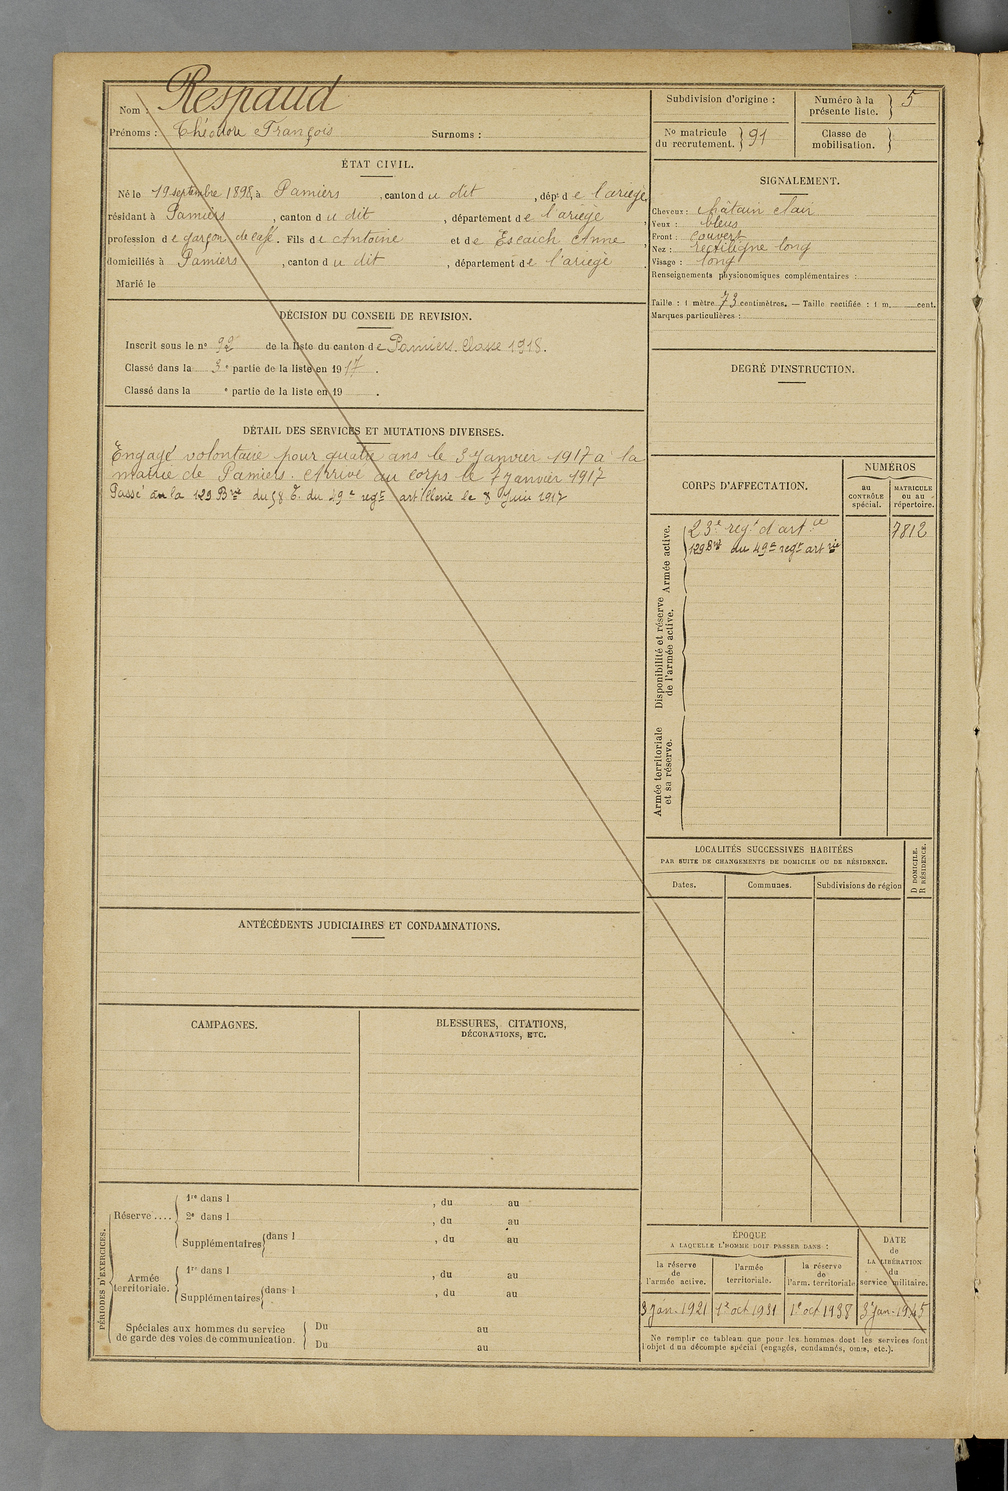 Nom : Respaud
Prénoms : Théodore François Surnoms :
ÉTAT CIVIL.
Né le 19 septembre 1898, à Pamiers, canton du dit, dépt de l'ariège,
résidant à Pamiers, canton du dit, département de l'ariège,
profession de garçon de café. Fils de Antoine et de Escaich Anne,
domiciliés à Pamiers, canton du dit, département de l'ariège.
Marié le
DÉCISION DU CONSEIL DE REVISION.
Inscrit sous le n° 92 de la liste du canton de Pamiers. Classe 1918.
Classé dans la 3e partie de la liste en 1917.
Classé dans la e partie de la liste en 19 .
DÉTAIL DES SERVICES ET MUTATIONS DIVERSES.
Engagé volontaire pour quatre ans le 3 Janvier 1917 à la
mairie de Pamiers. Arrivé au corps le 7 janvier 1917
Passé à la 129 Bie du 58 C. du 49e regt artillerie le 8 Juin 1917
ANTÉCÉDENTS JUDICIAIRES ET CONDAMNATIONS.
CAMPAGNES.
BLESSURES, CITATIONS,
DÉCORATIONS, ETC.
PÉRIODES D'EXERCICES.
Réserve....
1re dans l , du au
2e dans l , du au
Supplémentaires dans l , du au
Armée
territoriale.
1re dans l , du au
Supplémentaires dans l , du au
Spéciales aux hommes du service
de garde des voies de communication.
Du au
Du au
Subdivision d'origine :
Numéro à la
présente liste. 5
No matricule
du recrutement. 91
Classe de
mobilisation.
SIGNALEMENT.
Cheveux : châtain clair
Yeux : bleus
Front : couvert
Nez : rectiligne long
Visage : long
Renseignements physionomiques complémentaires :
Taille : 1 mètre 73 centimètres. — Taille rectifiée : 1 m. cent.
Marques particulières :
DEGRÉ D'INSTRUCTION.
CORPS D'AFFECTATION.
NUMÉROS
au
CONTRÔLE
spécial.
MATRICULE
ou au
répertoire.
Armée active.
23e regt d'artie 7812
129 Bie du 49e regt artrie
Disponibilité et réserve
de l'armée active.
Armée territoriale
et sa réserve.
LOCALITÉS SUCCESSIVES HABITÉES
PAR SUITE DE CHANGEMENTS DE DOMICILE OU DE RÉSIDENCE.
D DOMICILE.
R RÉSIDENCE.
Dates. Communes. Subdivisions de région
ÉPOQUE
A LAQUELLE L'HOMME DOIT PASSER DANS :
DATE
de
LA LIBÉRATION
du
service militaire.
la réserve
de
l'armée active.
l'armée
territoriale.
la réserve
de
l'arm. territoriale
3 jan. 1921 1er oct 1931 1er oct 1938 3 Jan. 1945
Ne remplir ce tableau que pour les hommes dont les services font
l'objet d'un décompte spécial (engagés, condamnés, omis, etc.).